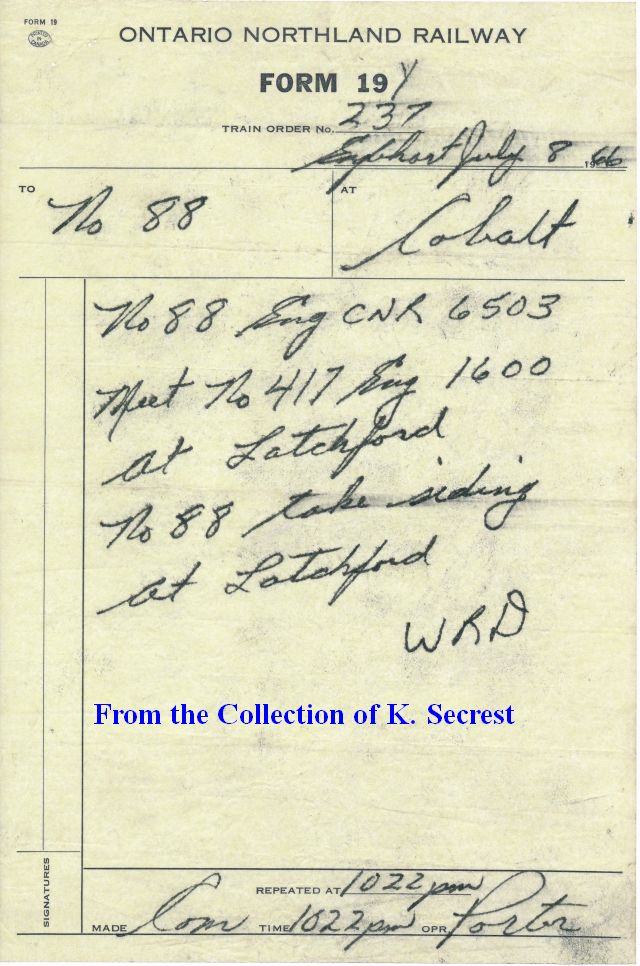 FORM 19
PRINTED IN CANADA
ONTARIO NORTHLAND RAILWAY
FORM 19 Y
TRAIN ORDER No. 237
Englehart July 8 1966
TO No 88 AT Cobalt
No 88 Eng CNR 6503
Meet No 417 Eng 1600
at Latchford
No 88 take siding
at Latchford
WRD
From the Collection of K. Secrest
SIGNATURES
REPEATED AT 1022 pm
MADE Com TIME 1022 pm OPR Porter